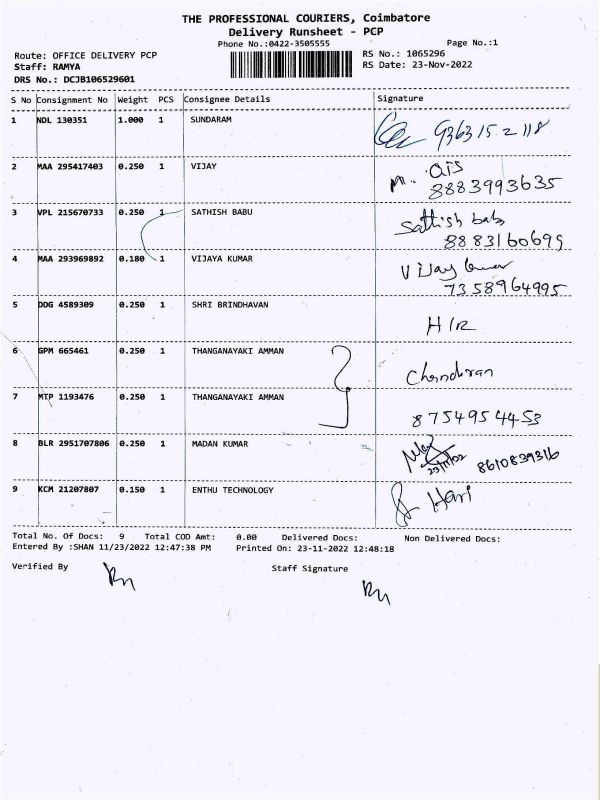 THE PROFESSIONAL COURIERS, Coimbatore
Delivery Runsheet - PCP
Phone No.:0422-3505555 Page No.:1
Route: OFFICE DELIVERY PCP RS No.: 1065296
Staff: RAMYA RS Date: 23-Nov-2022
DRS No.: DCJB106529601
S No Consignment No Weight PCS Consignee Details Signature
1 NDL 130351 1.000 1 SUNDARAM 9363152118
2 MAA 295417403 0.250 1 VIJAY M.
8883993635
3 VPL 215670733 0.250 1 SATHISH BABU Sathish babu
8883160699
4 MAA 293969892 0.180 1 VIJAYA KUMAR Vijay kumar
7358964995
5 DDG 4589309 0.250 1 SHRI BRINDHAVAN H/R
6 GPM 665461 0.250 1 THANGANAYAKI AMMAN Chandran
7 MTP 1193476 0.250 1 THANGANAYAKI AMMAN 8754954453
8 BLR 2951707806 0.250 1 MADAN KUMAR 8610839316
23/11/22
9 KCM 21207807 0.150 1 ENTHU TECHNOLOGY Hari
Total No. Of Docs: 9 Total COD Amt: 0.00 Delivered Docs: Non Delivered Docs:
Entered By :SHAN 11/23/2022 12:47:38 PM Printed On: 23-11-2022 12:48:18
Verified By Staff Signature